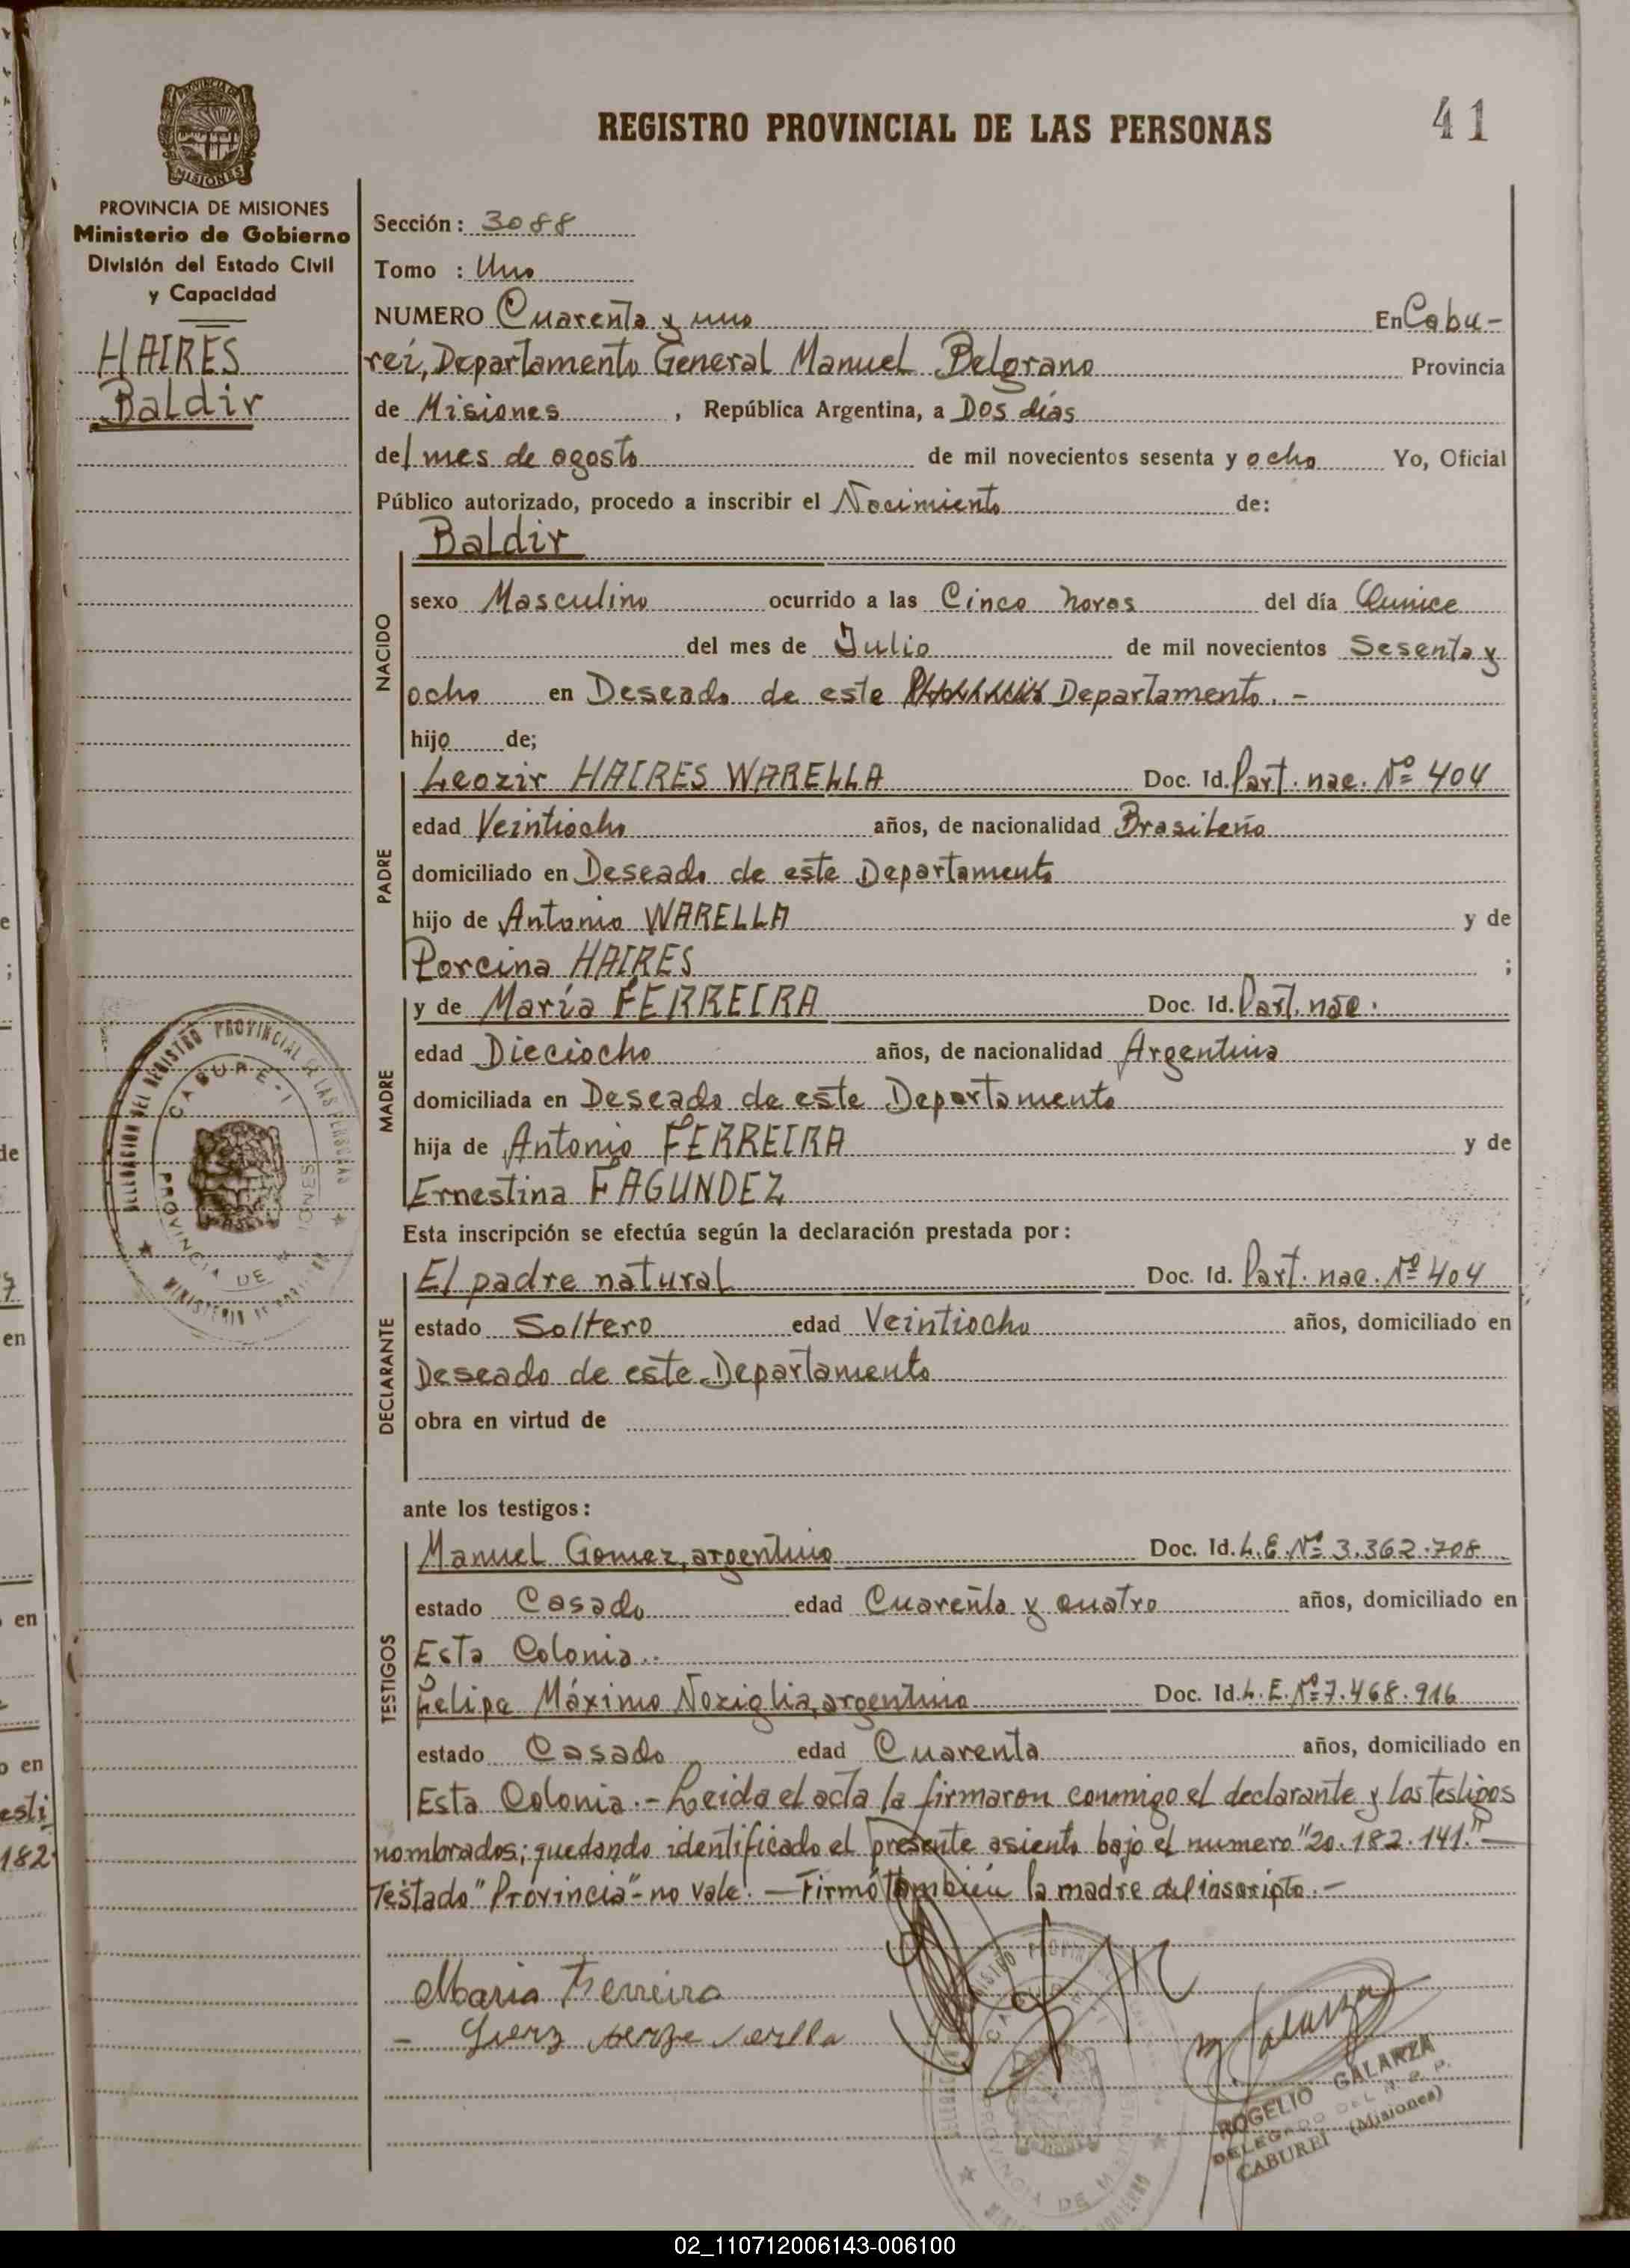 REGISTRO PROVINCIAL DE LAS PERSONAS
41
PROVINCIA DE MISIONES
Ministerio de Gobierno
División del Estado Civil
y Capacidad
HAIRES
Baldir
Sección: 3088
Tomo : Uno
NUMERO Cuarenta y uno En Cabu-
reí, Departamento General Manuel Belgrano Provincia
de Misiones, República Argentina, a Dos días
del mes de agosto de mil novecientos sesenta y ocho Yo, Oficial
Público autorizado, procedo a inscribir el Nacimiento de:
Baldir
NACIDO
sexo Masculino ocurrido a las Cinco horas del día Quince
del mes de Julio de mil novecientos Sesenta y
ocho en Deseado de este Departamento.-
hijo de;
PADRE
Leozir HAIRES WARELLA Doc. Id. Part. nac. Nº 404
edad Veintiocho años, de nacionalidad Brasileño
domiciliado en Deseado de este Departamento
hijo de Antonio WARELLA y de
Porcina HAIRES ;
MADRE
y de María FERREIRA Doc. Id. Part. nac.
edad Dieciocho años, de nacionalidad Argentina
domiciliada en Deseado de este Departamento
hija de Antonio FERREIRA y de
Ernestina FAGUNDEZ
Esta inscripción se efectúa según la declaración prestada por:
DECLARANTE
El padre natural Doc. Id. Part. nac. Nº 404
estado Soltero edad Veintiocho años, domiciliado en
Deseado de este Departamento
obra en virtud de
ante los testigos:
TESTIGOS
Manuel Gomez, argentino Doc. Id. L.E. Nº 3.362.708
estado Casado edad Cuarenta y cuatro años, domiciliado en
Esta Colonia..
Felipe Máximo Noziglia, argentino Doc. Id. L.E. Nº 7.468.916
estado Casado edad Cuarenta años, domiciliado en
Esta Colonia.- Leida el acta la firmaron conmigo el declarante y los testigos
nombrados; quedando identificado el presente asiento bajo el numero "20.182.141."-
Testado "Provincia"- no vale.- Firmó también la madre del inscripto.-
Maria Ferreira
M Galarza
ROGELIO GALARZA
DELEGADO DEL R. P.
CABUREI (Misiones)
DELEGACION DEL REGISTRO PROVINCIAL DE LAS PERSONAS
CABURE-I
PROVINCIA DE MISIONES
MINISTERIO DE GOBIERNO
02_110712006143-006100